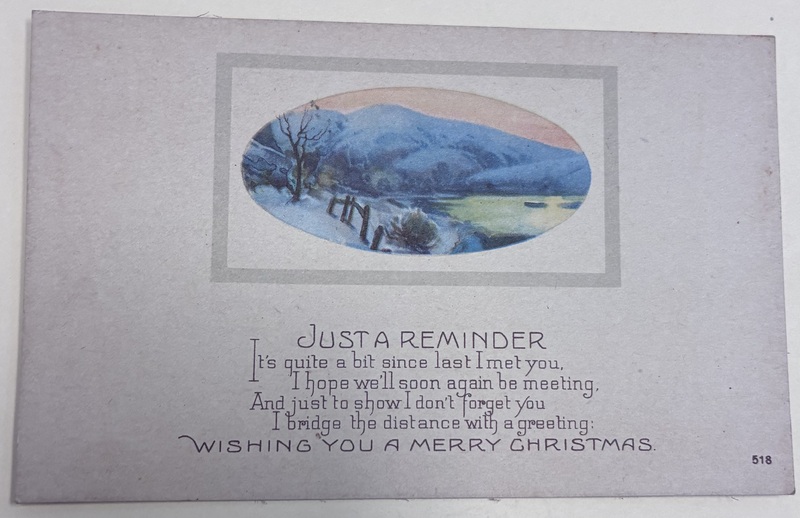 JUST A REMINDER
It's quite a bit since last I met you,
I hope we'll soon again be meeting,
And just to show I don't forget you
I bridge the distance with a greeting:
WISHING YOU A MERRY CHRISTMAS.
518